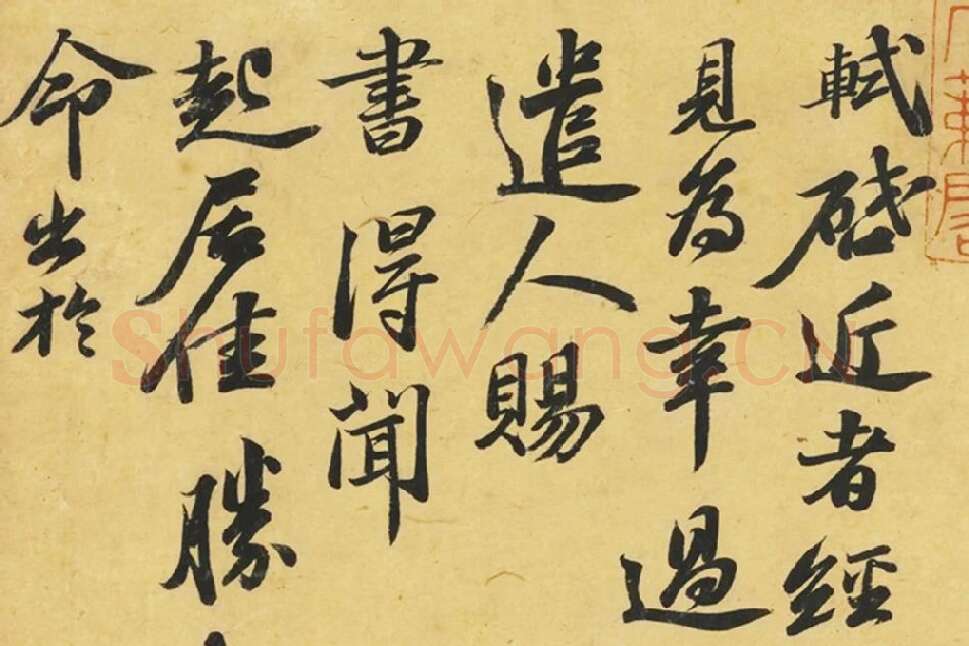 軾啓近者經
見為幸過
遣人賜
書得聞
起居佳勝
命出於
Shufawang.CN